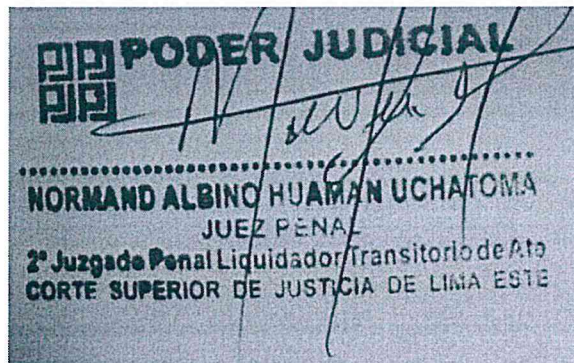 PODER JUDICIAL
NORMAND ALBINO HUAMAN UCHATOMA
JUEZ PENAL
2° Juzgado Penal Liquidador Transitorio de Ate
CORTE SUPERIOR DE JUSTICIA DE LIMA ESTE